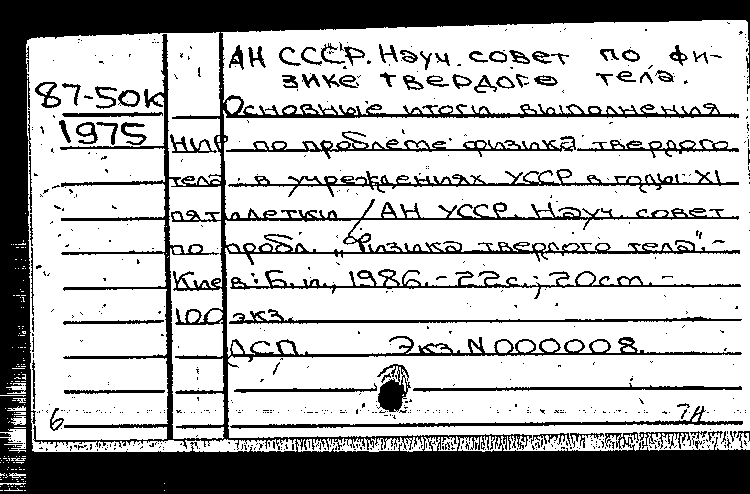 АН СССР. Науч. совет по фи-
зике твердого тела.
87-50К
1975
Основные итоги выполнения
НИР по проблеме физика твердого
тела в учреждениях УССР в годы XI
пятилетки / АН УССР. Науч. совет
по пробл. „Физика твердого тела".-
Киев: Б. и., 1986.-22с.; 20см.-
100 экз.
ДСП. Экз. N 000008.
6